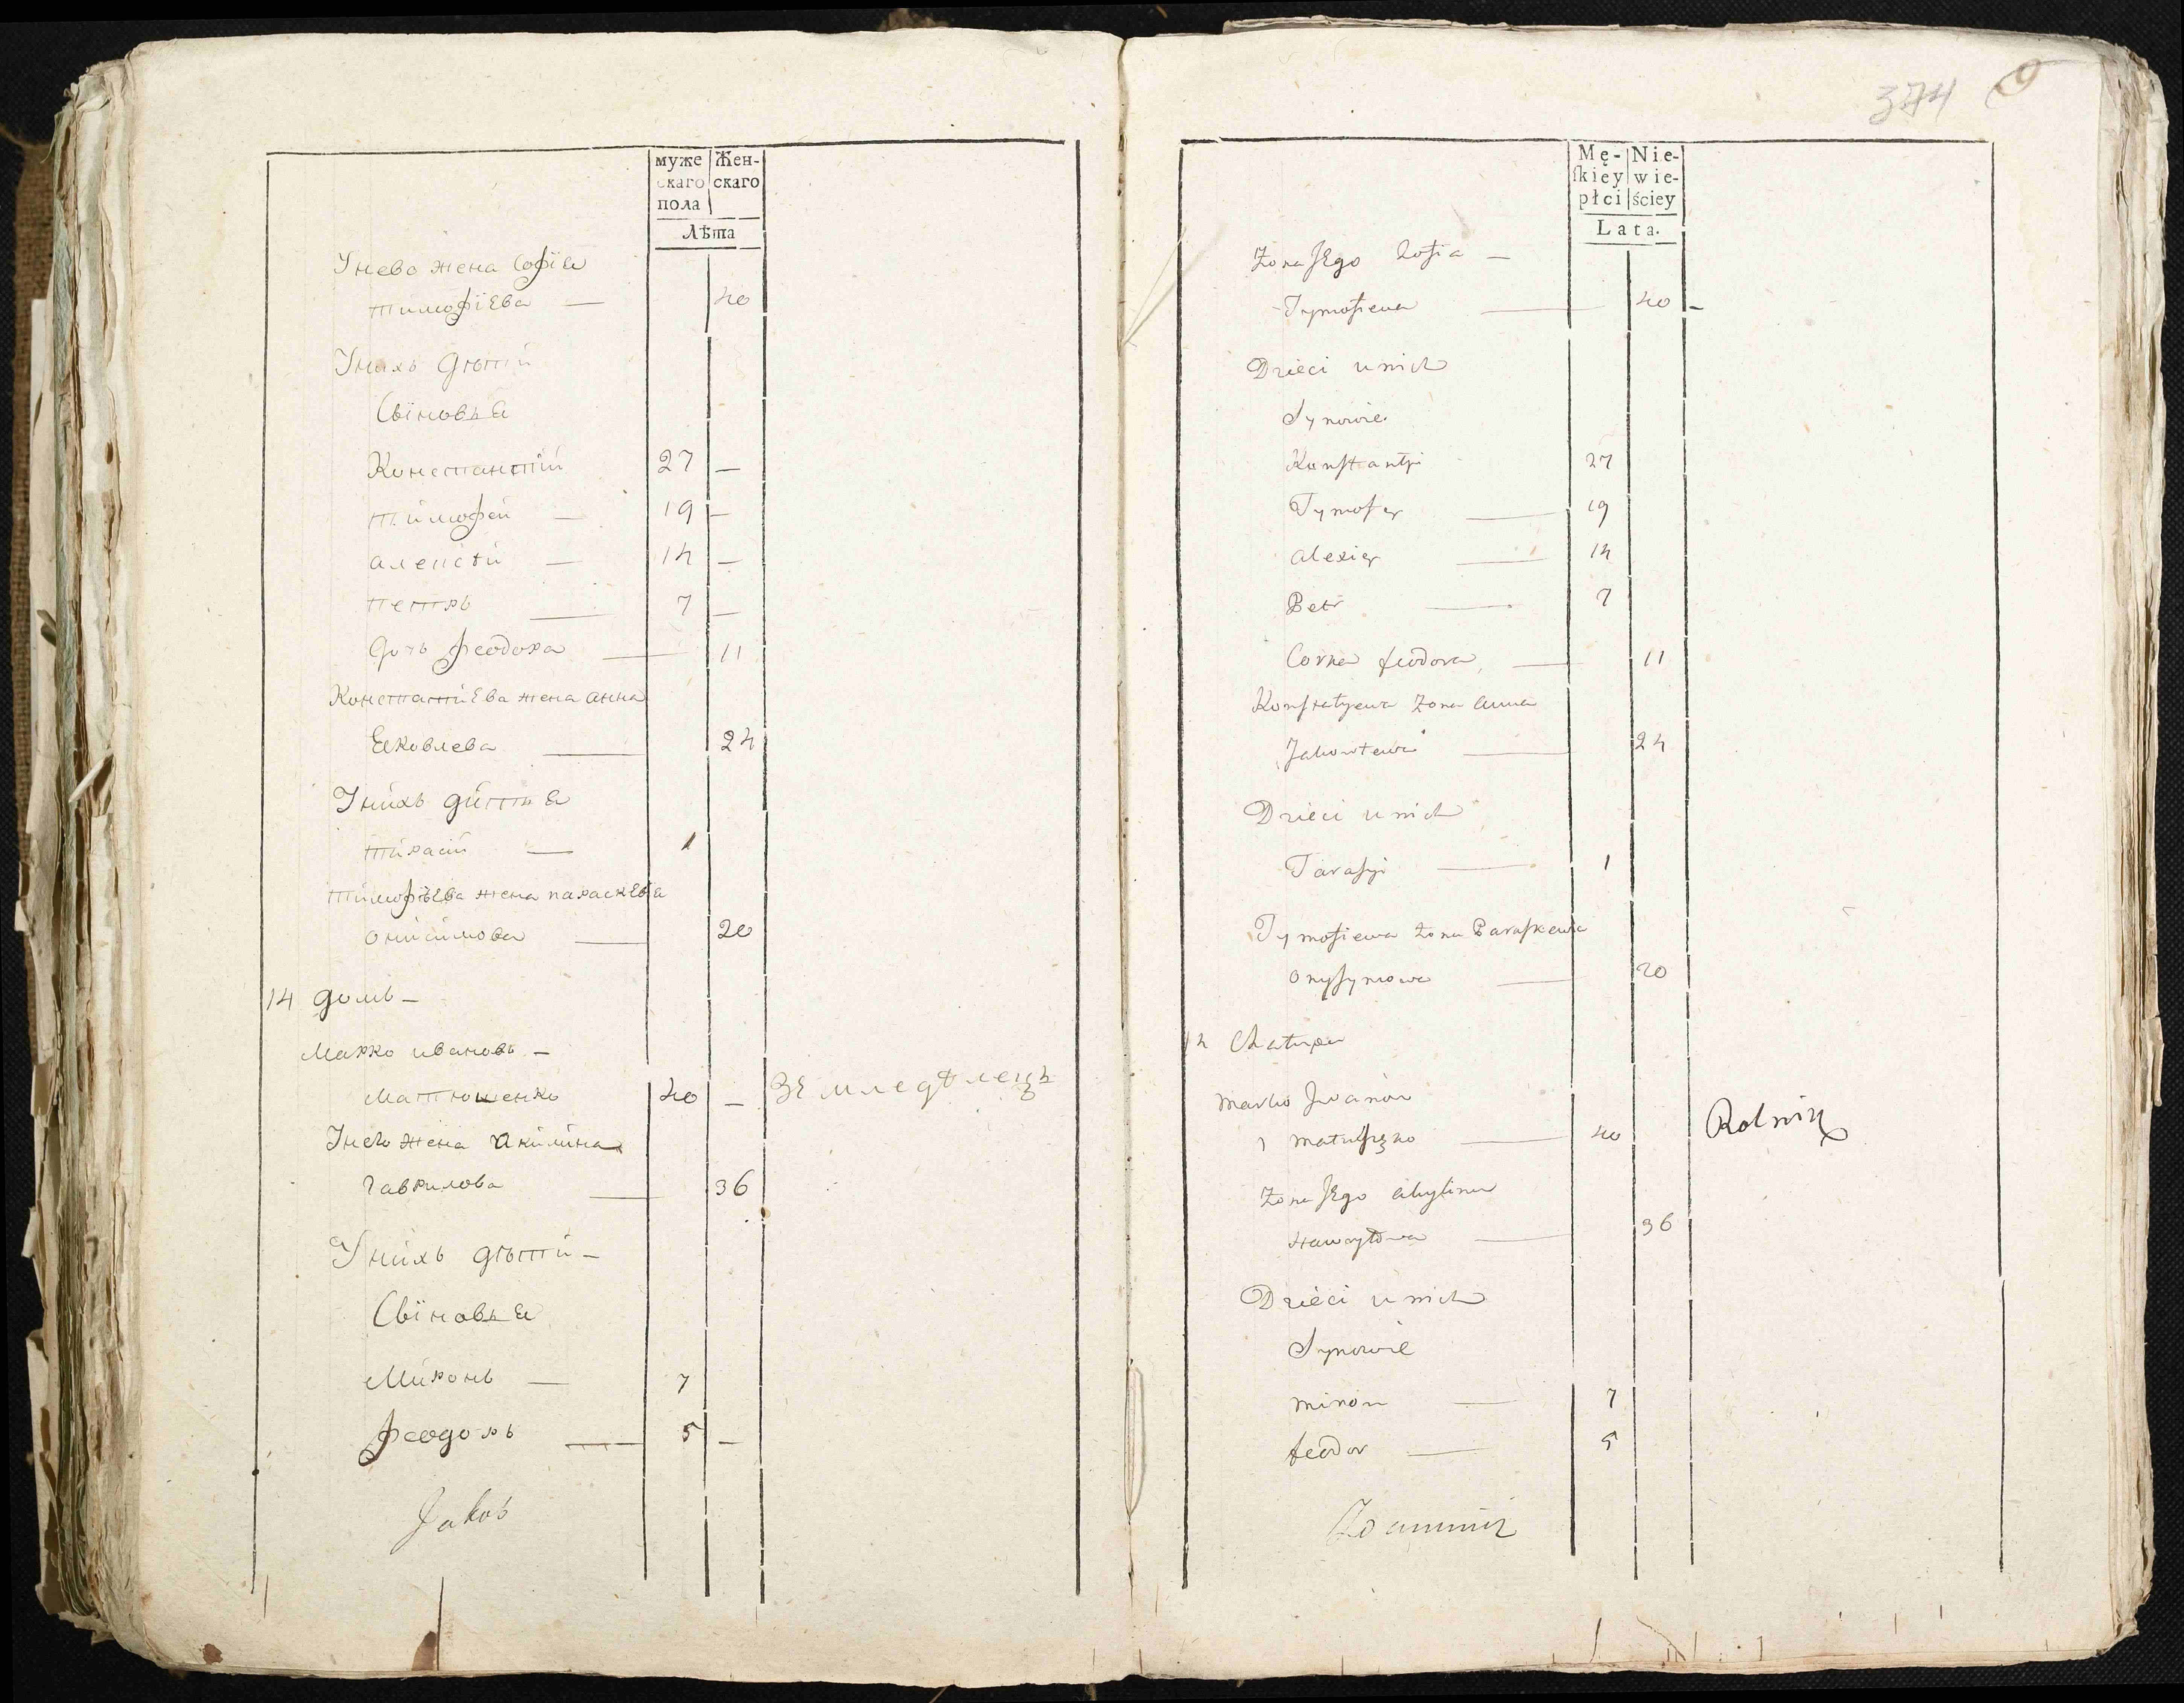 муже Жен-
скаго скаго
пола
Лѣта
Унево жена Софїя
тимофїева — 40
Унихъ дѣтїй
Сїновья
Константїй 27 —
тимофей — 19 —
алеисѣй — 14 —
петръ — 7 —
дочь феодора — 11
Констатиева жена анна
Яковлева — 24
Унихъ дитья
тирасїй — 1
тимофѣева жена параскевїа
онисимова — 20
14 домъ —
Марко ивановъ —
Матюшенко 40 — Земледѣлецъ
Унево жена Акилина
Гаврилова — 36
Унихъ дѣтти —
Сїновья
Миронъ — 7
феодоръ — 5 —
Jakob
374
Mę- Nie-
ſkiey wie-
płci ściey
Lata.
Żona Jego Zofia —
Tymofiewa — 40 —
Dzieci u nich
Synowie
Konstantyi 27
Tymofey — 19
Alexiey — 14
Petr — 7
Corka feodora — 11
Konstatyewa żona Anna
Jakowlewa — 24
Dzieci u nich
Tarasyi — 1
Tymofiewa żona Paraskewia
Onysymowa — 20
14 Chałupa
Marko Jwanow
Matuszęko — 40 Rolnik
Żona Jego Akylina
Hawryłowa — 36
Dzieci u nich
Synowie
Miron — 7
feodor — 5